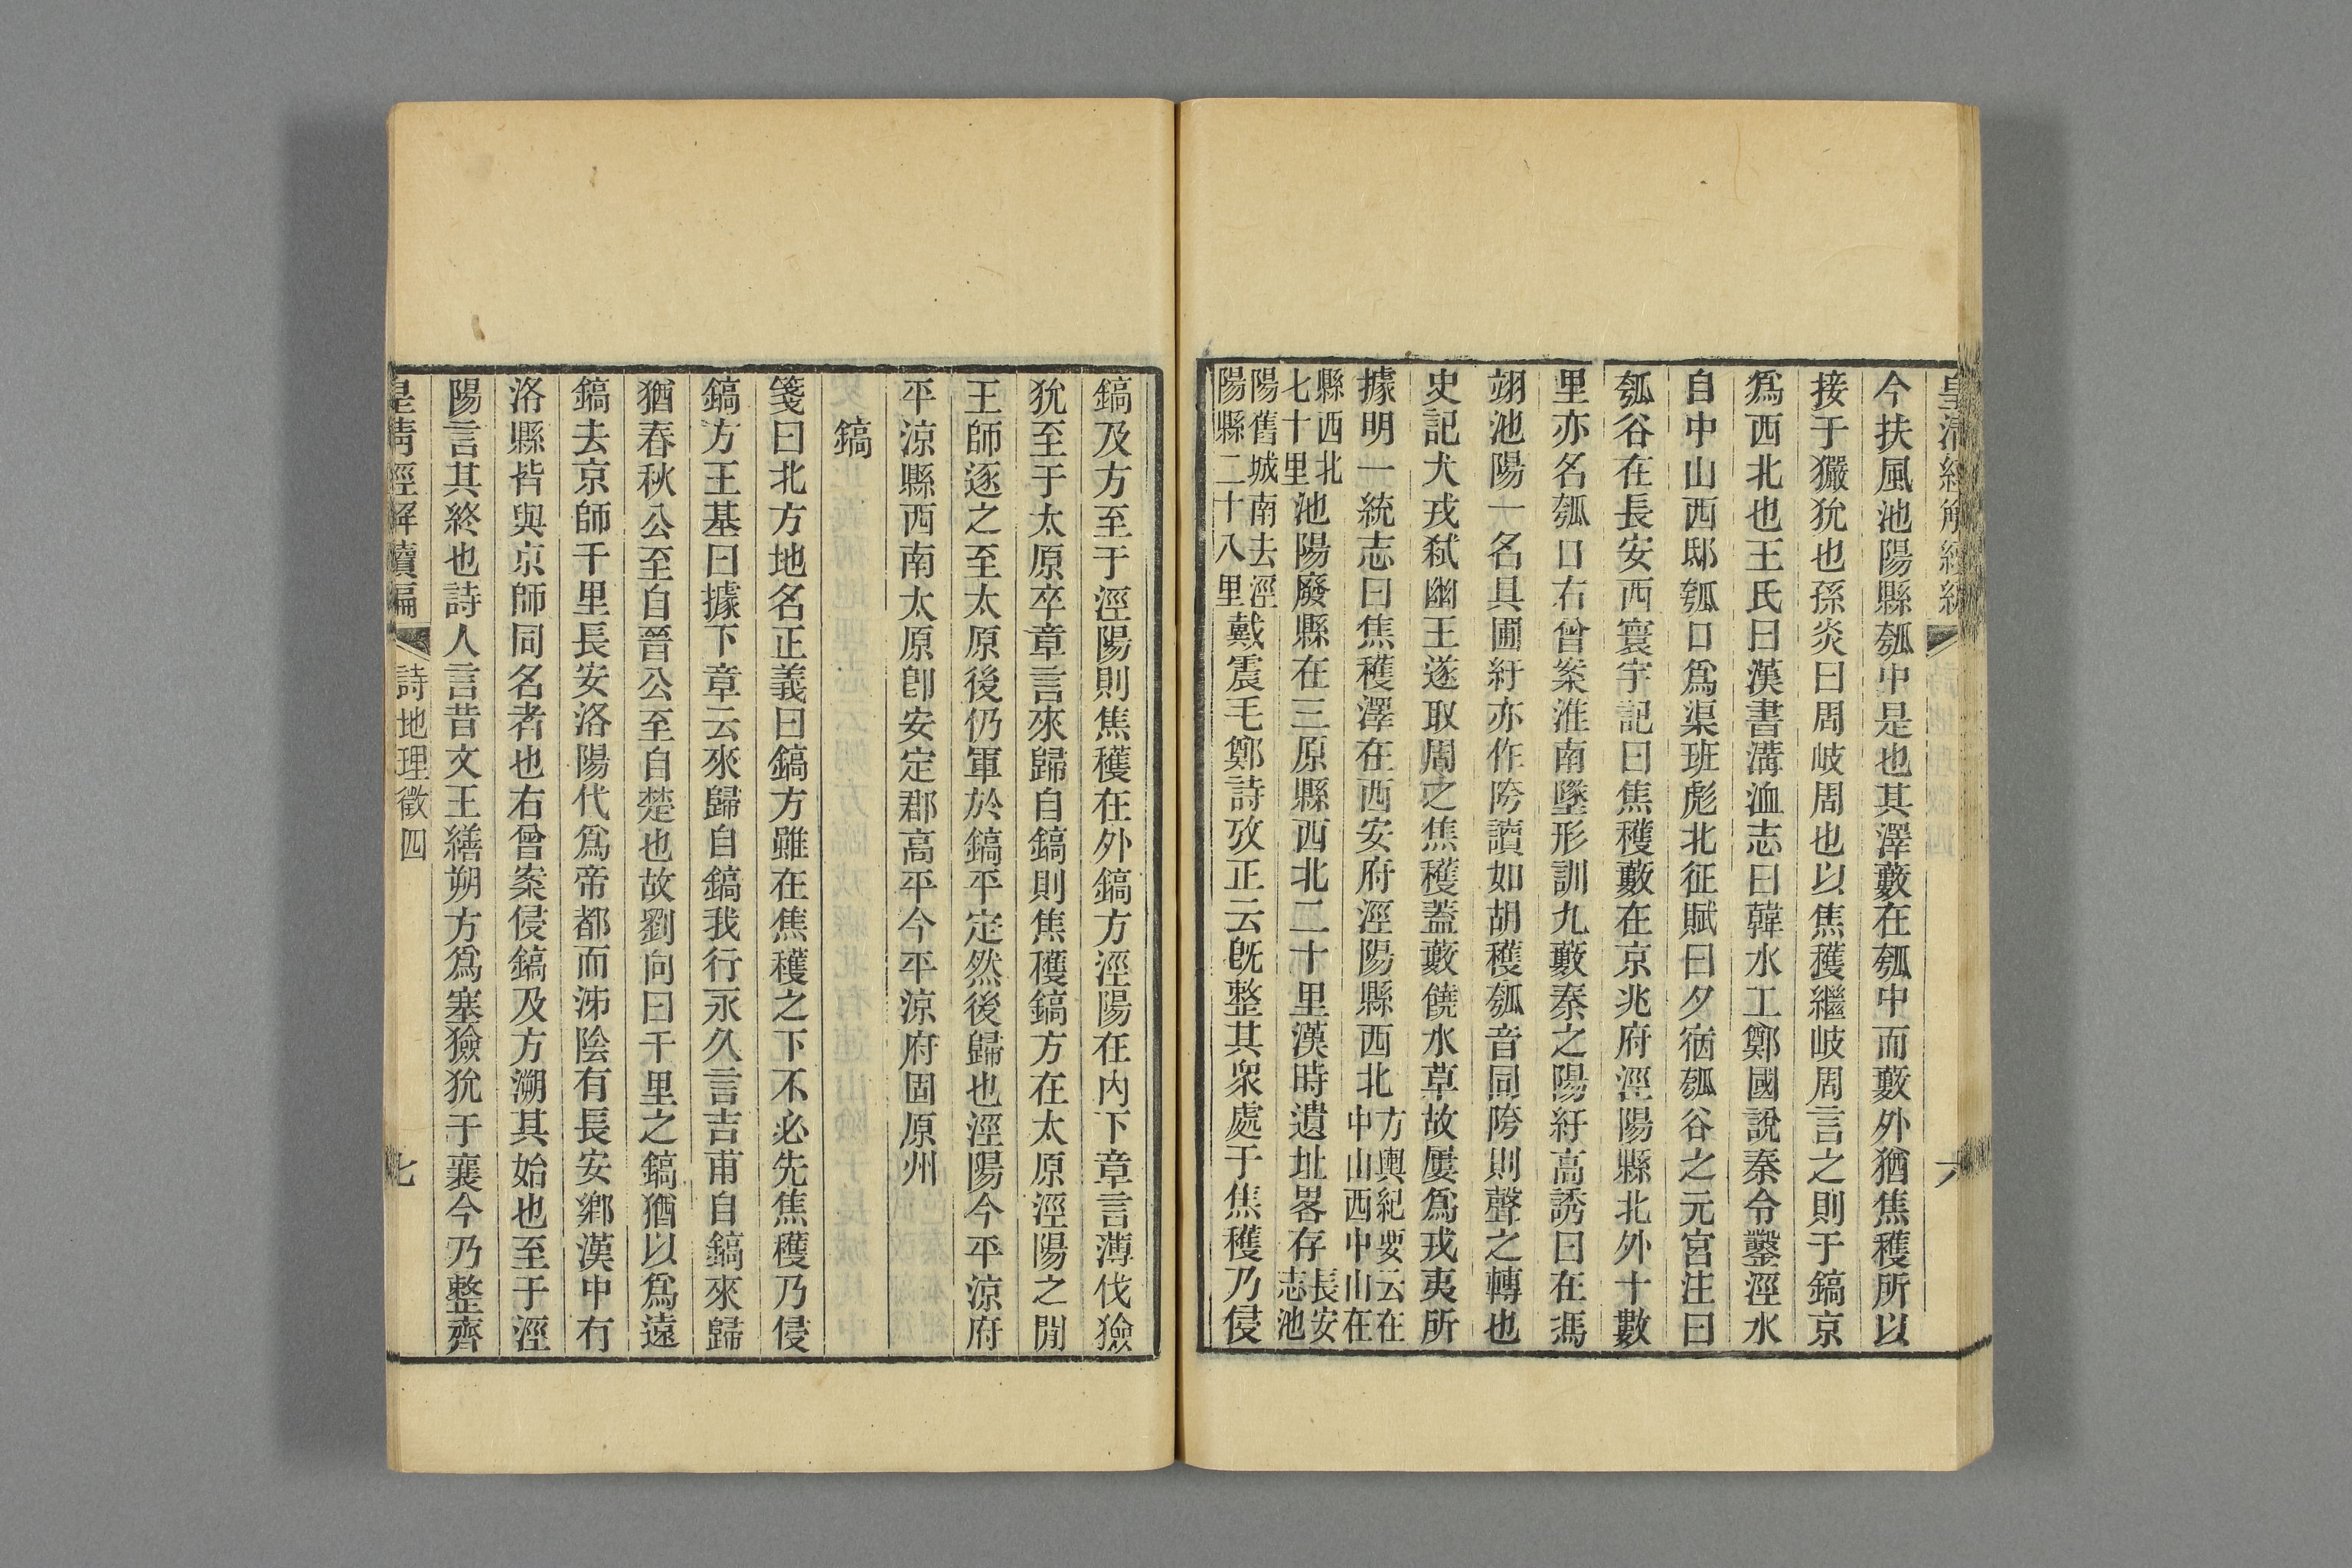 今扶風池陽縣瓠中是也其澤藪在瓠中而藪外猶焦穫所以
接于玁狁也孫炎曰周岐周也以焦穫繼岐周言之則于鎬京
爲西北也王氏曰漢書溝洫志曰韓水工鄭國說秦令鑿涇水
自中山西邸瓠口爲渠班彪北征賦曰夕宿瓠谷之元宮注曰
瓠谷在長安西寰宇記曰焦穫藪在京兆府涇陽縣北外十數
里亦名瓠口右曾案淮南墜形訓九藪秦之陽紆高誘曰在馮
翊池陽一名具圃紆亦作陓讀如胡穫瓠音同陓則聲之轉也
史記犬戎弑幽王遂取周之焦穫蓋藪饒水草故屢爲戎夷所
據明一統志曰焦穫澤在西安府涇陽縣西北方輿紀要云在中山西中山在
縣西北七十里池陽廢縣在三原縣西北二十里漢時遺址畧存長安志池
陽舊城南去涇陽縣二十八里戴震毛鄭詩攷正云旣整其衆處于焦穫乃侵
鎬及方至于涇陽則焦穫在外鎬方涇陽在內下章言薄伐獫
狁至于太原卒章言來歸自鎬則焦穫鎬方在太原涇陽之閒
王師逐之至太原後仍軍於鎬平定然後歸也涇陽今平涼府
平涼縣西南太原卽安定郡高平今平涼府固原州
鎬
箋曰北方地名正義曰鎬方雖在焦穫之下不必先焦穫乃侵
鎬方王基曰據下章云來歸自鎬我行永久言吉甫自鎬來歸
猶春秋公至自晉公至自楚也故劉向曰千里之鎬猶以爲遠
鎬去京師千里長安洛陽代爲帝都而沛陰有長安鄉漢中有
洛縣皆與京師同名者也右曾案侵鎬及方溯其始也至于涇
陽言其終也詩人言昔文王繕朔方爲塞獫狁于襄今乃整齊
皇清經解續編 詩地理徵四 七